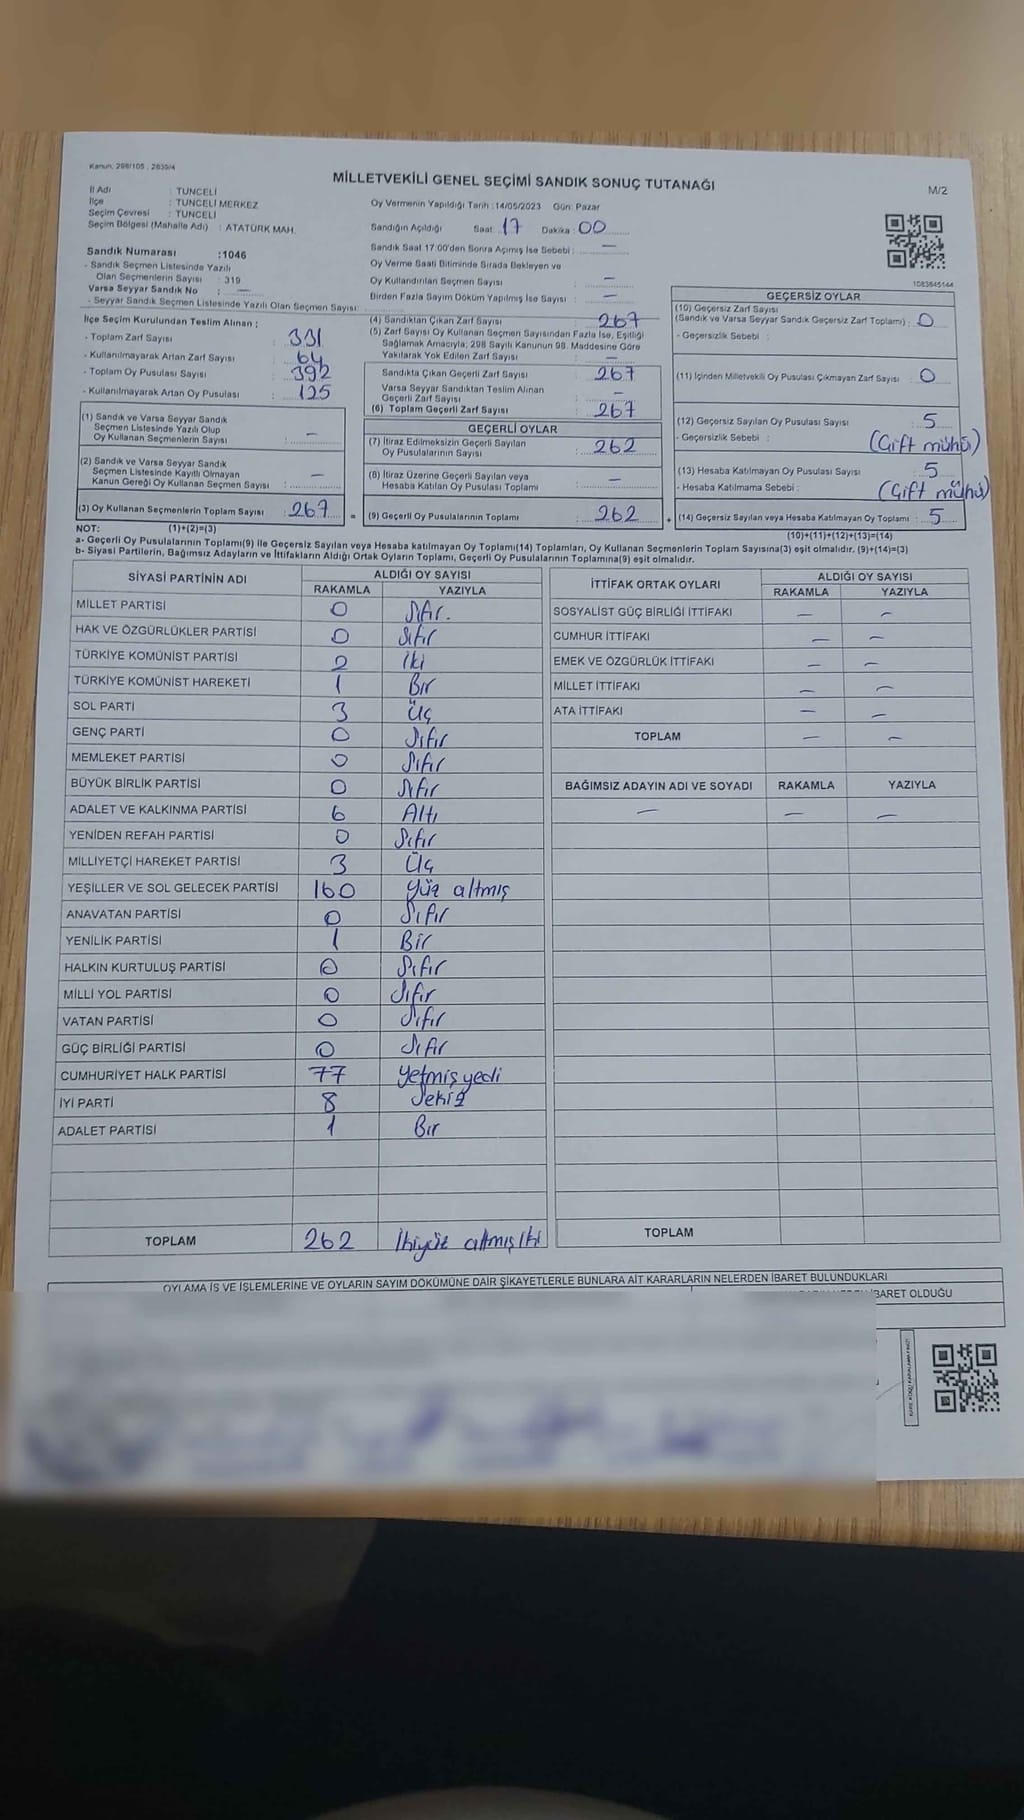 Kanun: 298/105 , 2839/4
MİLLETVEKİLİ GENEL SEÇİMİ SANDIK SONUÇ TUTANAĞI
M/2
İl Adı : TUNCELİ
İlçe : TUNCELİ MERKEZ
Seçim Çevresi : TUNCELİ
Seçim Bölgesi (Mahalle Adı) : ATATÜRK MAH.
Oy Vermenin Yapıldığı Tarih :14/05/2023 Gün: Pazar
Sandığın Açıldığı Saat 17 Dakika : 00
Sandık Saat 17:00'den Sonra Açmış İse Sebebi : —
Oy Verme Saati Bitiminde Sırada Bekleyen ve
Oy Kullandırılan Seçmen Sayısı : —
Birden Fazla Sayım Döküm Yapılmış İse Sayısı : —
1083845144
Sandık Numarası :1046
- Sandık Seçmen Listesinde Yazılı
Olan Seçmenlerin Sayısı : 319
Varsa Seyyar Sandık No : —
- Seyyar Sandık Seçmen Listesinde Yazılı Olan Seçmen Sayısı:
İlçe Seçim Kurulundan Teslim Alınan ;
- Toplam Zarf Sayısı : 331
- Kullanılmayarak Artan Zarf Sayısı : 64
- Toplam Oy Pusulası Sayısı : 392
- Kullanılmayarak Artan Oy Pusulası : 125
(1) Sandık ve Varsa Seyyar Sandık
Seçmen Listesinde Yazılı Olup
Oy Kullanan Seçmenlerin Sayısı : —
(2) Sandık ve Varsa Seyyar Sandık
Seçmen Listesinde Kayıtlı Olmayan
Kanun Gereği Oy Kullanan Seçmen Sayısı : —
(3) Oy Kullanan Seçmenlerin Toplam Sayısı : 267
(4) Sandıktan Çıkan Zarf Sayısı : 267
(5) Zarf Sayısı Oy Kullanan Seçmen Sayısından Fazla İse, Eşitliği
Sağlamak Amacıyla; 298 Sayılı Kanunun 98. Maddesine Göre
Yakılarak Yok Edilen Zarf Sayısı : —
Sandıkta Çıkan Geçerli Zarf Sayısı : 267
Varsa Seyyar Sandıktan Teslim Alınan
Geçerli Zarf Sayısı : —
(6) Toplam Geçerli Zarf Sayısı : 267
GEÇERLİ OYLAR
(7) İtiraz Edilmeksizin Geçerli Sayılan
Oy Pusulalarının Sayısı : 262
(8) İtiraz Üzerine Geçerli Sayılan veya
Hesaba Katılan Oy Pusulası Toplamı : —
= (9) Geçerli Oy Pusulalarının Toplamı : 262
GEÇERSİZ OYLAR
(10) Geçersiz Zarf Sayısı
(Sandık ve Varsa Seyyar Sandık Geçersiz Zarf Toplamı) : 0
- Geçersizlik Sebebi :
(11) İçinden Milletvekili Oy Pusulası Çıkmayan Zarf Sayısı : 0
(12) Geçersiz Sayılan Oy Pusulası Sayısı : 5
- Geçersizlik Sebebi : (Çift mühür)
(13) Hesaba Katılmayan Oy Pusulası Sayısı : 5
- Hesaba Katılmama Sebebi : (Çift mühür)
+ (14) Geçersiz Sayılan veya Hesaba Katılmayan Oy Toplamı : 5
NOT: (1)+(2)=(3)
(10)+(11)+(12)+(13)=(14)
a- Geçerli Oy Pusulalarının Toplamı(9) ile Geçersiz Sayılan veya Hesaba katılmayan Oy Toplamı(14) Toplamları, Oy Kullanan Seçmenlerin Toplam Sayısına(3) eşit olmalıdır. (9)+(14)=(3)
b- Siyasi Partilerin, Bağımsız Adayların ve İttifakların Aldığı Ortak Oyların Toplamı, Geçerli Oy Pusulalarının Toplamına(9) eşit olmalıdır.
SİYASİ PARTİNİN ADI ALDIĞI OY SAYISI
RAKAMLA YAZIYLA
MİLLET PARTİSİ 0 Sıfır.
HAK VE ÖZGÜRLÜKLER PARTİSİ 0 Sıfır
TÜRKİYE KOMÜNİST PARTİSİ 2 İki
TÜRKİYE KOMÜNİST HAREKETİ 1 Bir
SOL PARTİ 3 Üç
GENÇ PARTİ 0 Sıfır
MEMLEKET PARTİSİ 0 Sıfır
BÜYÜK BİRLİK PARTİSİ 0 Sıfır
ADALET VE KALKINMA PARTİSİ 6 Altı
YENİDEN REFAH PARTİSİ 0 Sıfır
MİLLİYETÇİ HAREKET PARTİSİ 3 Üç
YEŞİLLER VE SOL GELECEK PARTİSİ 160 Yüz altmış
ANAVATAN PARTİSİ 0 Sıfır
YENİLİK PARTİSİ 1 Bir
HALKIN KURTULUŞ PARTİSİ 0 Sıfır
MİLLİ YOL PARTİSİ 0 Sıfır
VATAN PARTİSİ 0 Sıfır
GÜÇ BİRLİĞİ PARTİSİ 0 Sıfır
CUMHURİYET HALK PARTİSİ 77 Yetmiş yedi
İYİ PARTİ 8 Sekiz
ADALET PARTİSİ 1 Bir
TOPLAM 262 İkiyüz altmış iki
İTTİFAK ORTAK OYLARI ALDIĞI OY SAYISI
RAKAMLA YAZIYLA
SOSYALİST GÜÇ BİRLİĞİ İTTİFAKI — —
CUMHUR İTTİFAKI — —
EMEK VE ÖZGÜRLÜK İTTİFAKI — —
MİLLET İTTİFAKI — —
ATA İTTİFAKI — —
TOPLAM — —
BAĞIMSIZ ADAYIN ADI VE SOYADI RAKAMLA YAZIYLA
— — —
TOPLAM
OYLAMA İŞ VE İŞLEMLERİNE VE OYLARIN SAYIM DÖKÜMÜNE DAİR ŞİKAYETLERLE BUNLARA AİT KARARLARIN NELERDEN İBARET BULUNDUKLARI
İBARET OLDUĞU